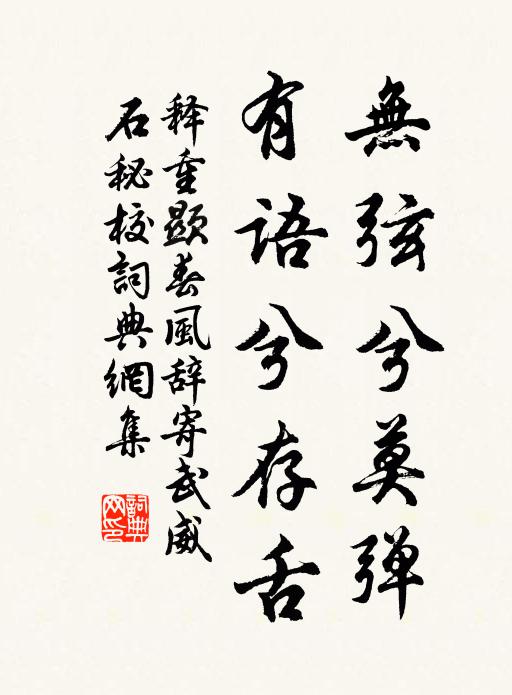 無弦兮莫弹
有語兮存舌
释重顕春風辞寄武威
石秘校詞典網集
詞典网印